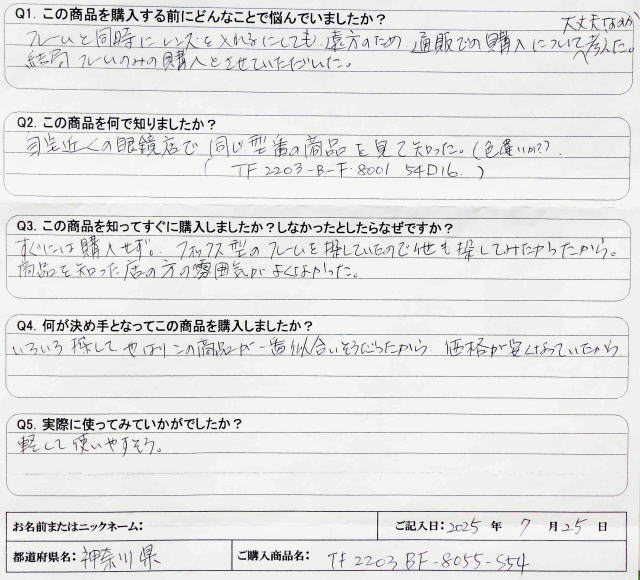 Q1. この商品を購入する前にどんなことで悩んでいましたか？
フレームと同時にレンズを入れるにしても、遠方のため、通販での購入について大丈夫なのか考えた。
結局フレームのみの購入とさせていただいた。
Q2. この商品を何で知りましたか？
自宅近くの眼鏡店で同じ型番の商品を見て知った。(色違いか？).
(TF 2203-B-F. 8001 54□16.)
Q3. この商品を知ってすぐに購入しましたか？しなかったとしたらなぜですか？
すぐには購入せず。フォックス型のフレームを探していたので他も探してみたかったから。
商品を知った店の方の雰囲気がよくなかった。
Q4. 何が決め手となってこの商品を購入しましたか？
いろいろ探してやはりこの商品が一番似合いそうだったから. 価格が安くなっていたから
Q5. 実際に使ってみていかがでしたか？
軽して使いやすそう。
お名前またはニックネーム：
ご記入日：2025 年 7 月 25 日
都道府県名：神奈川県
ご購入商品名： TF 2203 BF-8055-S54